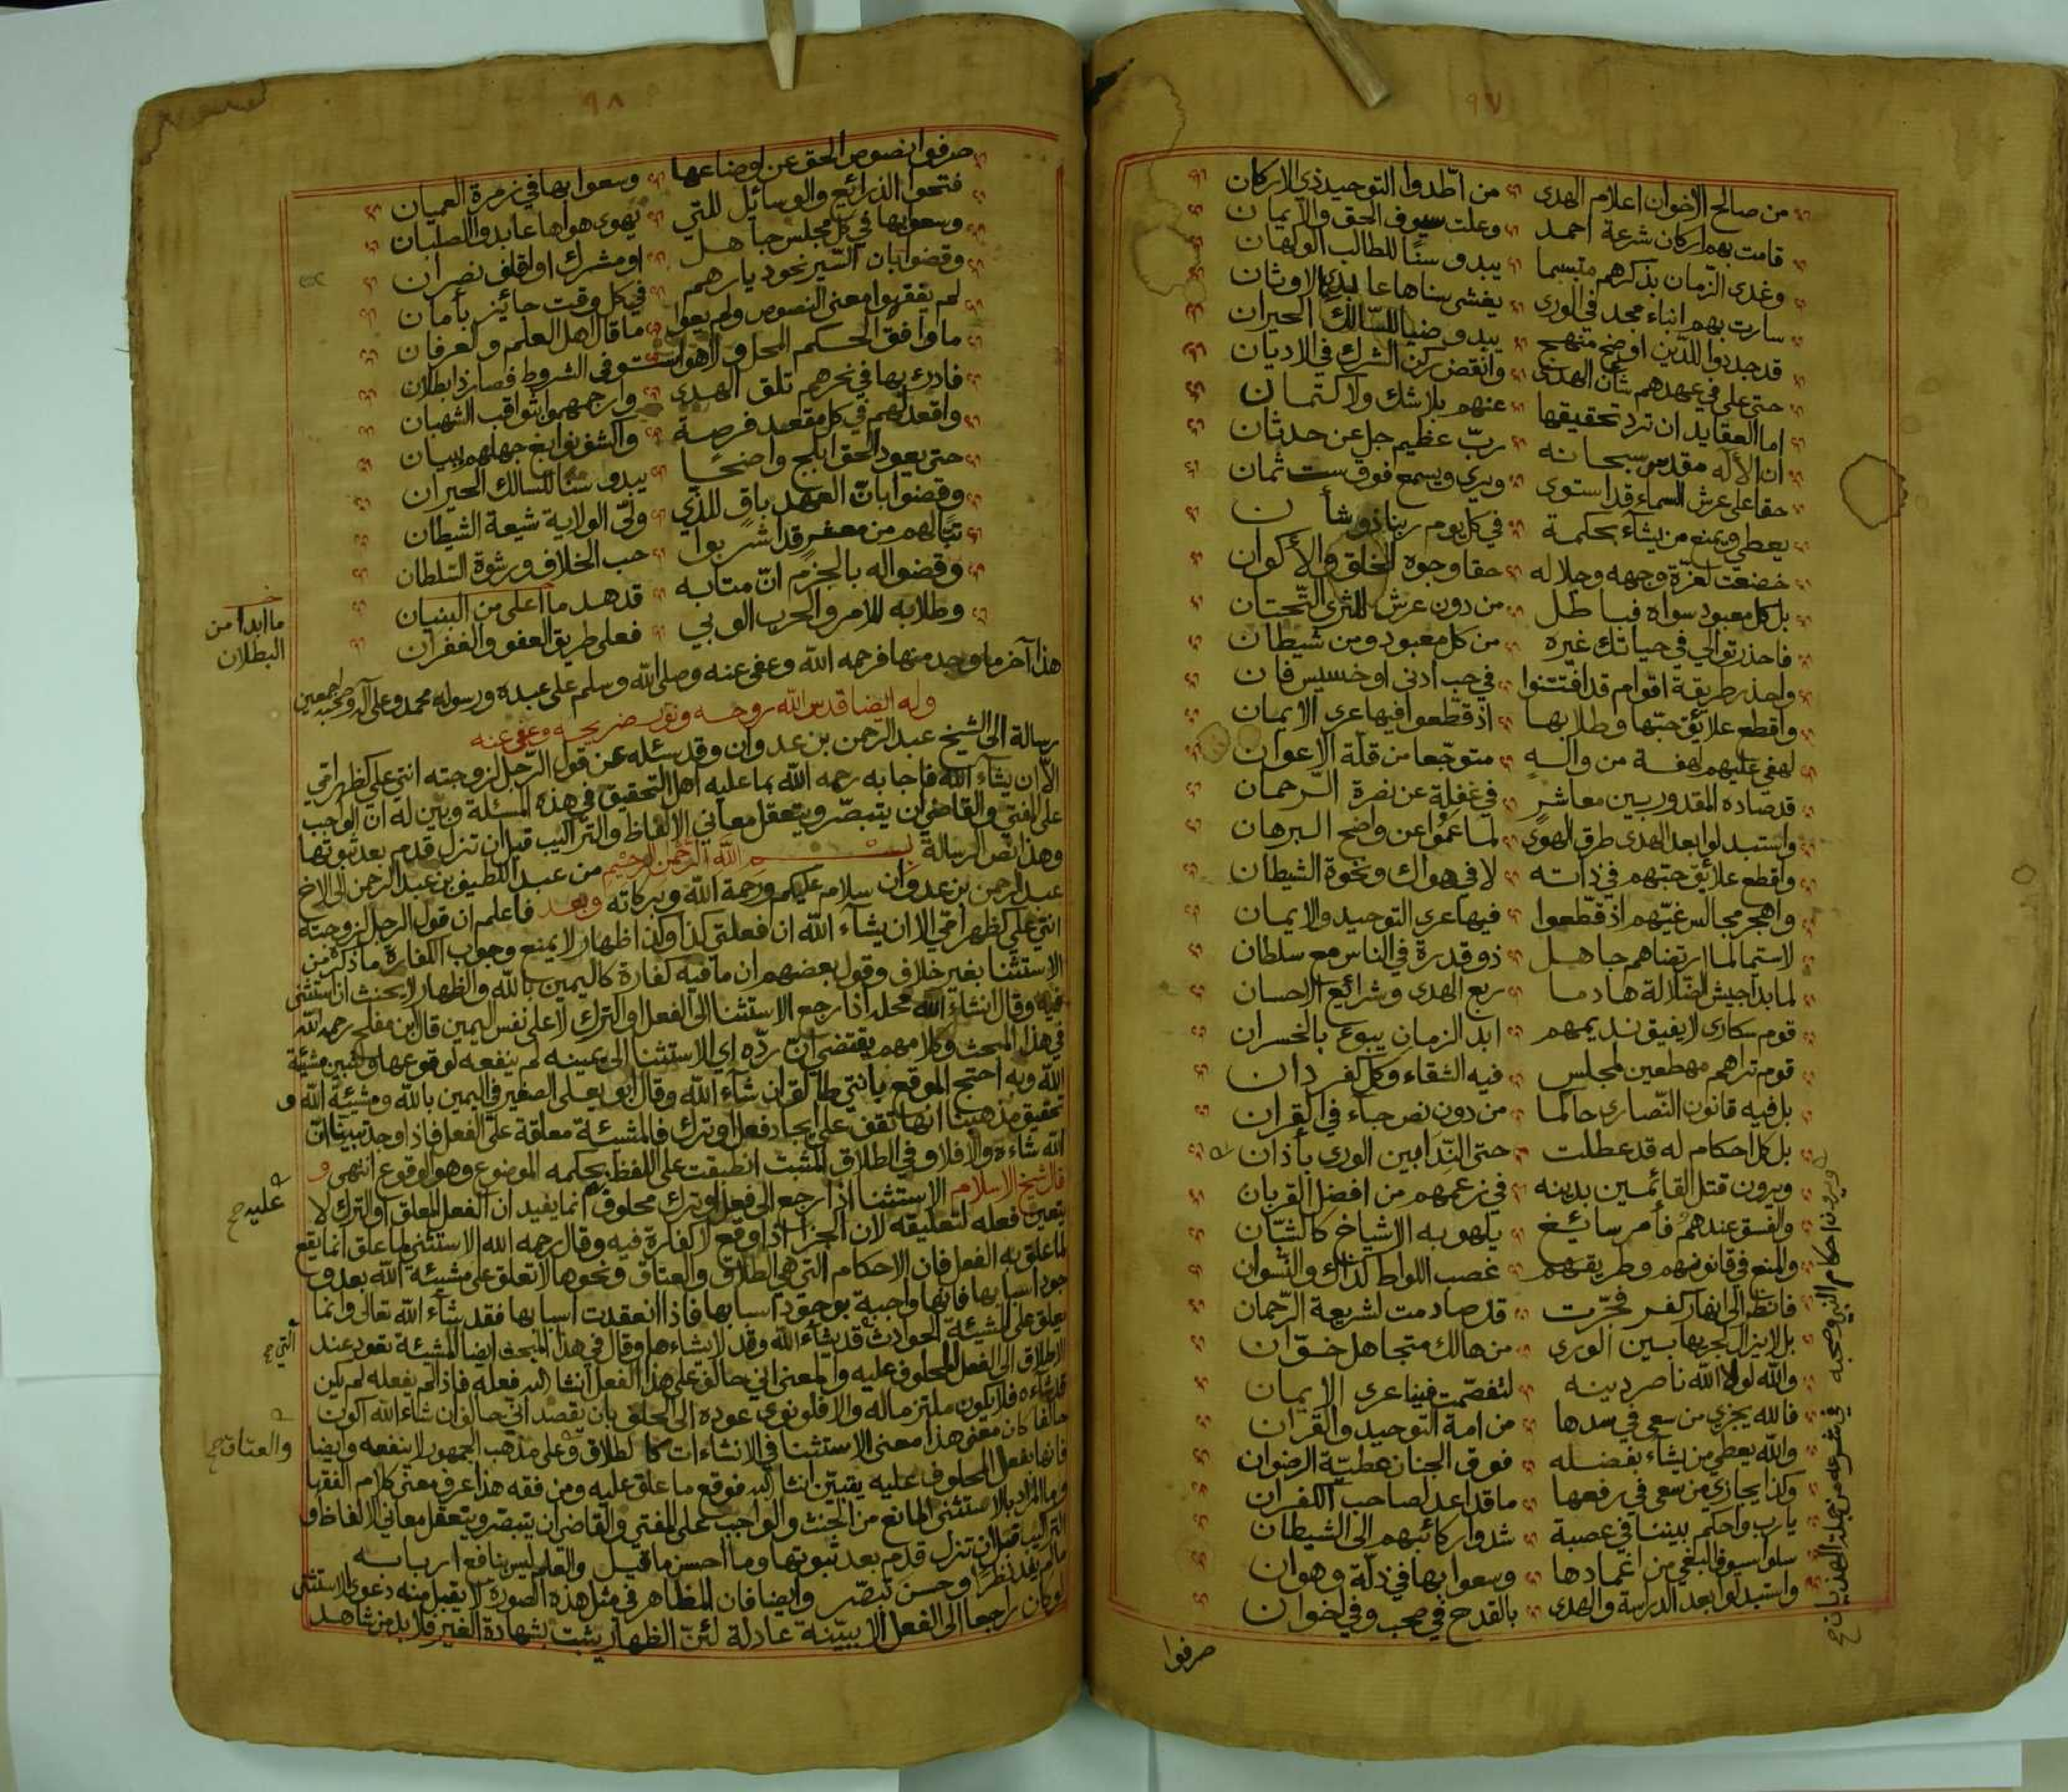 ٩٧
من صالح الاخوان اعلام الهدى من اطدوا التوحيد ذي الاركان
قامت بهم اركان شرعة احمد وعلت سيوف الحق والايمان
وغدى الزمان بذكرهم متبسما يبدو سنا للطالب الولهان
سارت بهم انباء مجد في الورى يغشى سناها عابدي الاوثان
قد جددوا للدين اوضح منهج يبدو ضياء للسالك الحيران
حتى علي في عهدهم شأن الهدى وانقض ركن الشرك في الاديان
اما العقايد ان ترد تحقيقها عنهم بلا شك ولا كتمان
ان الاله مقدس سبحانه رب عظيم جل عن حدثان
حقا على عرش السماء قد استوى ويرى ويسمع فوق ست ثمان
يعطي ويمنع من يشاء بحكمة في كل يوم ربنا ذو شأن
خضعت لعزة وجهه وجلاله حقا وجوه الخلق والأكوان
بل كل معبود سواه فباطل من دون عرش للثرى التحتان
فاحذر توالي في حياتك غيره من كل معبود ومن شيطان
واحذر طريقة اقوام قد افتتنوا في حب أدنى او خسيس فان
واقطع علائق حبها وطلابها اذ قطعوا فيها عرى الايمان
لهفي عليهم لهفة من واله متوجعا من قلة الاعوان
قد صاده المقدور بين معاشر في غفلة عن نصرة الرحمان
واستبدلوا بعد الهدى طرق الهوى لما عموا عن واضح البرهان
واقطع علائق حبهم في ذاته لا في هواك ونخوة الشيطان
واهجر مجالس غيهم اذ قطعوا فيها عرى التوحيد والايمان
لاسيما لما ارتضاهم جاهل ذو قدرة في الناس مع سلطان
لما بدا جيش الضلالة هادما ربع الهدى وشرائع الاحسان
قوم سكارى لا يفيق نديمهم ابد الزمان يبوء بالخسران
قوم تراهم مهطعين لمجلس فيه الشقاء وكل كفر دان
بل فيه قانون النصارى حاكما من دون نص جاء في القران
بل كل احكام له قد عطلت حتى الندا بين الورى بأذان
ويرون قتل القائمين بدينه في زعمهم من افضل القربان
والفسق عندهم فأمر سائغ يلهو به الاشياخ كالشبان
والمنع في قانونهم وطريقهم غصب اللواط كذاك والنسوان
فانظر الى انهار كفر فجرت قد صادمت لشريعة الرحمان
بل لا يزال لجريها بين الورى من هالك متجاهل خوان
والله لولا الله ناصر دينه لتفصمت فينا عرى الايمان
فالله يجزي من سعى في سدها من امة التوحيد والقران
والله يعطي من يشاء بفضله فوق الجنان عطية الرضوان
وكذا يجازي من سعى في رفعها ما قد اعد لصاحب الكفران
يا رب واحكم بيننا في عصبة شدوا ركائبهم الى الشيطان
سلوا سيوف البغي من اغمادها وسعوا بها في ذلة وهوان
واستبدلوا بعد الدراسة والهدى بالقدح في صحب وفي اخوان
ويرون احكام النبي وصحبه في شرعه من جملة الهذيان صح
صرفوا
٩٨
صرفوا نصوص الحق عن اوضاعها وسعوا بها في زمرة العميان
فتحوا الذرائع والوسائل للتي يهوى هواها عابدو الصلبان
وسعوا بها في كل مجلس جاهل او مشرك او اقلف نصران
وقضوا بان السير نحو ديارهم في كل وقت جائز بأمان
لم يفقهوا معنى النصوص ولم يعوا ما قال اهل العلم والعرفان
ما وافق الحكم المحل ولا هو استوفى الشروط فصار ذا بطلان
فادرء بها في نحرهم تلق الهدى وارجمهموا بثواقب الشهبان
واقعد لهم في كل مقعد فرصة واكشف نوابغ جهلهم ببيان
حتى يعود الحق ابلج واضحا يبدو سنا للسالك الحيران
وقضوا بان العهد باق للذي ولى الولاية شيعة الشيطان
تبا لهم من معشر قد اشربوا حب الخلاف ورشوة السلطان
وقضوا له بالجزم ان متابه قد هد ما اعلى من البنيان
ما ابدا من
البطلان
وطلابه للامر والحرب الوبي فعلى طريق العفو والغفران
هذا آخر ما وجد منها فرحمه الله وعفى عنه وصلى الله وسلم على عبده ورسوله محمد وعلى آله وصحبه اجمعين
وله ايضا قدس الله روحه ونور ضريحه وعفى عنه
رسالة الى الشيخ عبد الرحمن بن عدوان وقد سئله عن قول الرجل لزوجته انتي علي كظهر امي
الا ان يشاء الله فاجابه رحمه الله بما عليه اهل التحقيق في هذه المسئلة وبين له ان الواجب
على المفتي والقاضي ان يتبصر ويتعقل معاني الالفاظ والتراكيب قبل ان تنزل قدم بعد ثبوتها
وهذا نص الرسالة بسم الله الرحمن الرحيم من عبد اللطيف بن عبد الرحمن الى الاخ
عبد الرحمن بن عدوان سلام عليكم ورحمة الله وبركاته وبعد فاعلم ان قول الرجل لزوجته
انتي علي كظهر امي الا ان يشاء الله ان فعلتي كذا وكذا ظهار لا يمنع وجوب الكفارة ما ذكر من
الاستثنا بغير خلاف وقول بعضهم ان ما فيه كفارة كاليمين بالله والظهار لا يحنث ان استثنى
فيه وقال انشاء الله محله اذا رجع الاستثنا الى الفعل او الترك لا على نفس اليمين قال ابن مفلح رحمه الله
في هذا المبحث وكلامهم يقتضي ان رده اي الاستثنا الى يمينه لم ينفعه لوقوعها وتبين مشيئة
الله وبه احتج الموقع بانتي طالق ان شاء الله وقال ابو يعلى الصغير في اليمين بالله ومشيئة الله و
تحقيق مذهبنا انها تقف على ايجاد فعل او ترك فالمشيئة معلقة على الفعل فاذا وجد تبينا ان
الله شاءه والا فلا وفي الطلاق المشيئة انطبقت على اللفظ بحكمه الموضوع وهو الوقوع انتهى و
قال شيخ الاسلام الاستثنا اذا رجع الى فعل او ترك محلوف انما يفيد ان الفعل المعلق او الترك لا
عليه صح
يتعين فعله لتعليقه لان الجزا اذا وقع لا كفارة فيه وقال رحمه الله الاستثنى لما علق انما يقع
لما علق به الفعل فان الاحكام التي هي الطلاق والعتاق ونحوها لا تعلق على مشيئة الله بعد و
جود اسبابها فانها واجبة بوجود اسبابها فاذا انعقدت اسبابها فقد شاء الله تعالى وانما
يعلق على المشيئة الحوادث قد يشاء الله وقد لا يشاءها وقال في هذا المبحث ايضا المشيئة تعود عند
التي صح
الاطلاق الى الفعل المحلوف عليه والمعنى اني حالف على هذا الفعل انشا الله فعله فاذا لم يفعله لم يكن
قد شاءه فلا يكون ملتزما له والا فلو نوى عوده الى الحلف بان يقصد اني حالف ان شاء الله اكون
حالفا كان معنى هذا معنى الاستثنا في الانشاءات كالطلاق وعلى مذهب الجمهور لا ينفعه وايضا
والعتاق صح
فانها بفعل المحلوف عليه يقين انشا الله فوقع ما علق عليه ومن فقه هذا عرف معنى كلام الفقها
وما المراد بالاستثنى المانع من الحنث والواجب على المفتي والقاضي ان يتبصر ويتعقل معاني الالفاظ و
التراكيب قبل ان تنزل قدم بعد ثبوتها وما احسن ما قيل والعلم ليس بنافع اربابه
ما لم يفد نظرا وحسن تبصر وايضا فان المظاهر في مثل هذه الصورة لا يقبل منه دعوى الاستثنى
لو كان راجعا الى الفعل الا ببينة عادلة لئن الظهار يثبت بشهادة الغير فلا بد من شاهد